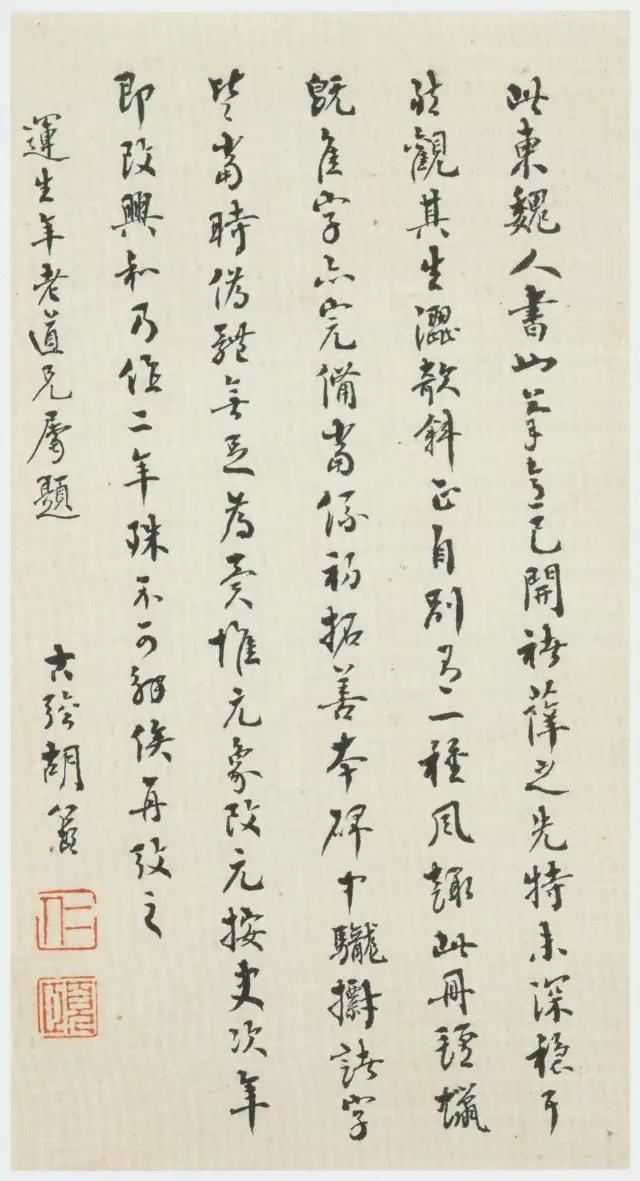 此東魏人書此筆意已開褚薛之先特未深穩耳
然觀其生澀欹斜正自別有一種風趣此冊氊蠟
既舊字亦完備當係初拓善本碑中驪㩌諸字
皆當時偽體無足為異惟元象改元按史次年
即改興和乃作二年殊不可解俟再攷之
運生年老道兄屬題
胡義